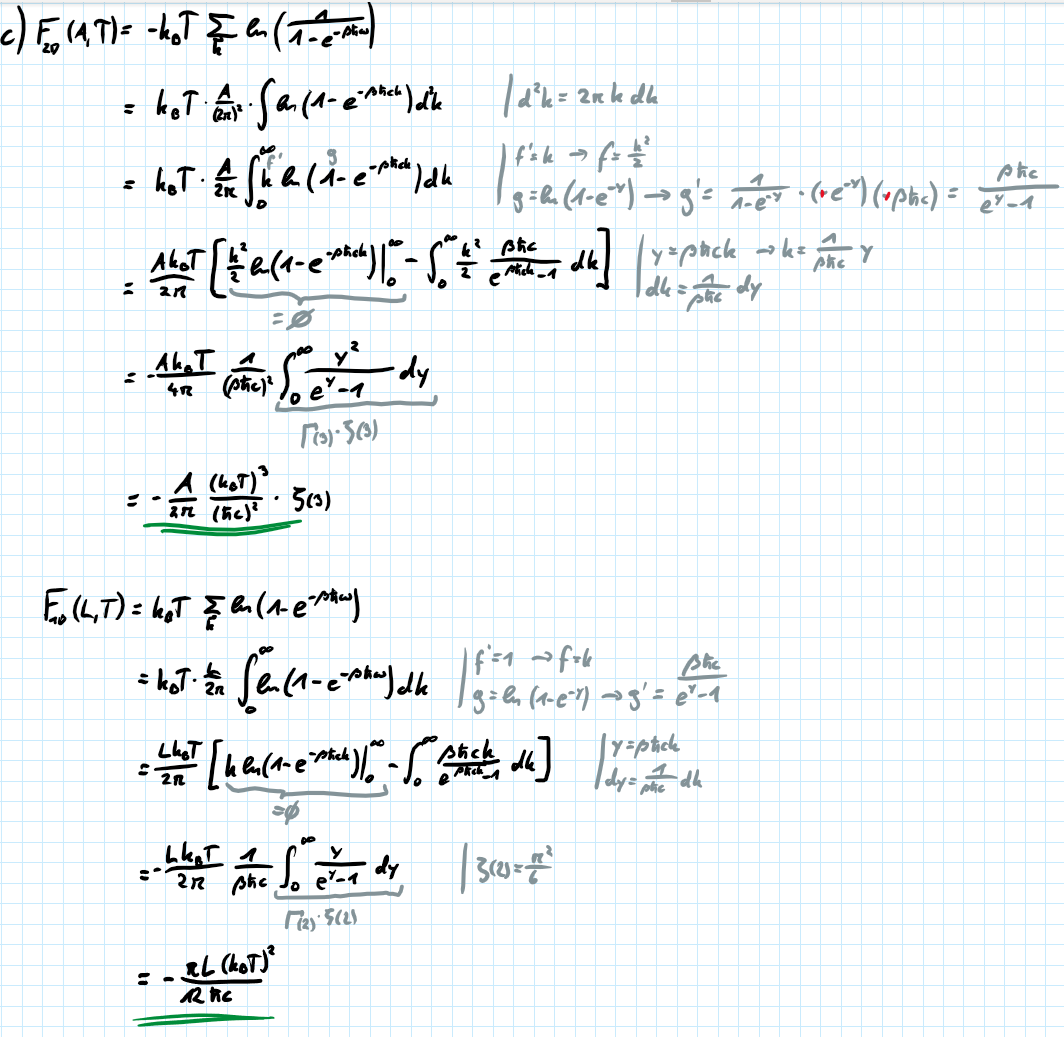 c) F₂D(A,T) = -k_BT Σ_k ln(1/(1-e^(-βħω)))
= k_BT · A/(2π)² · ∫ ln(1-e^(-βħck)) d²k | d²k = 2πk dk
= k_BT · A/2π ∫₀^∞ k ln(1-e^(-βħck)) dk f' g | f'=k → f=k²/2
g=ln(1-e^(-y)) → g' = 1/(1-e^(-y)) · (-e^(-y))(-βħc) = βħc/(e^y-1)
= Ak_BT/2π [k²/2 ln(1-e^(-βħck))|₀^∞ - ∫₀^∞ k²/2 βħc/(e^(βħck)-1) dk] | y=βħck → k=1/(βħc) y
dk=1/(βħc) dy
=∅
= -Ak_BT/4π 1/(βħc)² ∫₀^∞ y²/(e^y-1) dy
Γ(3)·ζ(3)
= -A/2π (k_BT)³/(ħc)² · ζ(3)
F₁D(L,T) = k_BT Σ_k ln(1-e^(-βħω))
= k_BT · L/2π ∫₀^∞ ln(1-e^(-βħω)) dk | f'=1 → f=k
g=ln(1-e^(-y)) → g' = βħc/(e^y-1)
= Lk_BT/2π [k ln(1-e^(-βħck))|₀^∞ - ∫₀^∞ βħck/(e^(βħck)-1) dk] | y=βħck
dy=1/(βħc) dk
=∅
= -Lk_BT/2π 1/(βħc) ∫₀^∞ y/(e^y-1) dy | ζ(2)=π²/6
Γ(2)·ζ(2)
= -πL(k_BT)²/(12ħc)